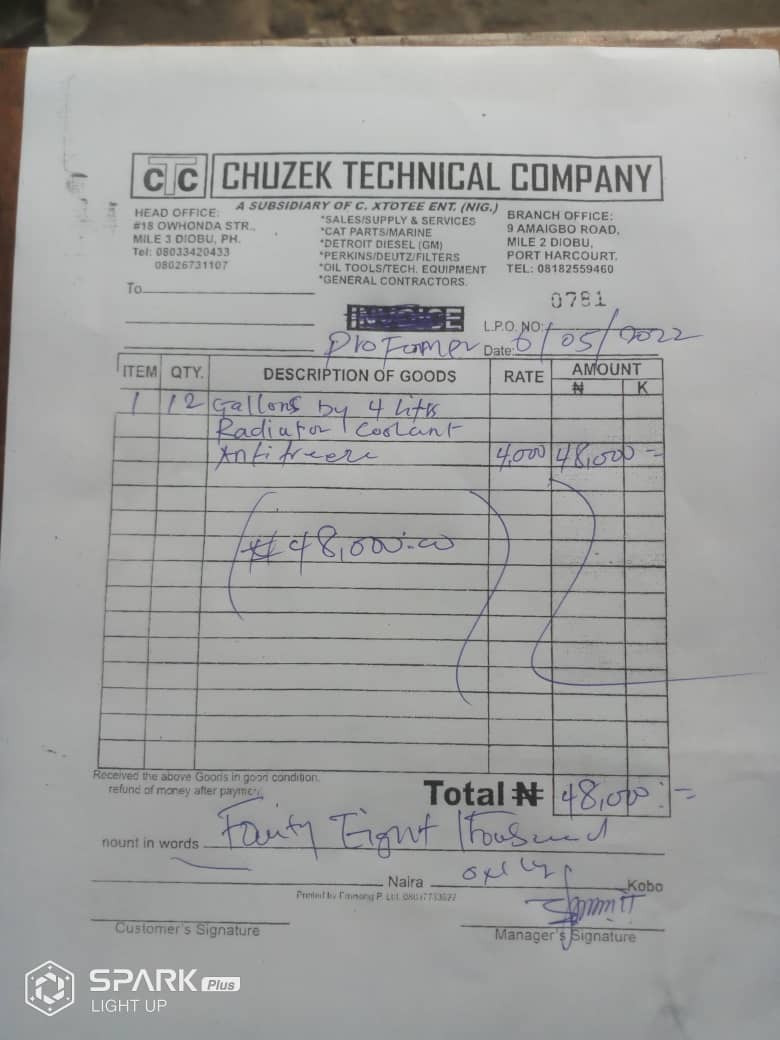 CTC CHUZEK TECHNICAL COMPANY
A SUBSIDIARY OF C. XTOTEE ENT. (NIG.)
HEAD OFFICE:
#18 OWHONDA STR.,
MILE 3 DIOBU, PH.
Tel: 08033420433
08026731107
*SALES/SUPPLY & SERVICES
*CAT PARTS/MARINE
*DETROIT DIESEL (GM)
*PERKINS/DEUTZ/FILTERS
*OIL TOOLS/TECH. EQUIPMENT
*GENERAL CONTRACTORS.
BRANCH OFFICE:
9 AMAIGBO ROAD,
MILE 2 DIOBU,
PORT HARCOURT.
TEL: 08182559460
To
0781
INVOICE
L.P.O. NO:
Pro Former
Date: 6/05/2022
ITEM QTY. DESCRIPTION OF GOODS RATE AMOUNT
₦ K
1 12 Gallons by 4 lits
Radiator Coolant
Antifreeze 4,000 48,000 =
₦48,000.00
Received the above Goods in good condition.
refund of money after payment.
Total ₦ 48,000 : =
nount in words Fourty Eight Thousand
only
Naira Kobo
Customer's Signature
Manager's Signature
SPARK Plus
LIGHT UP